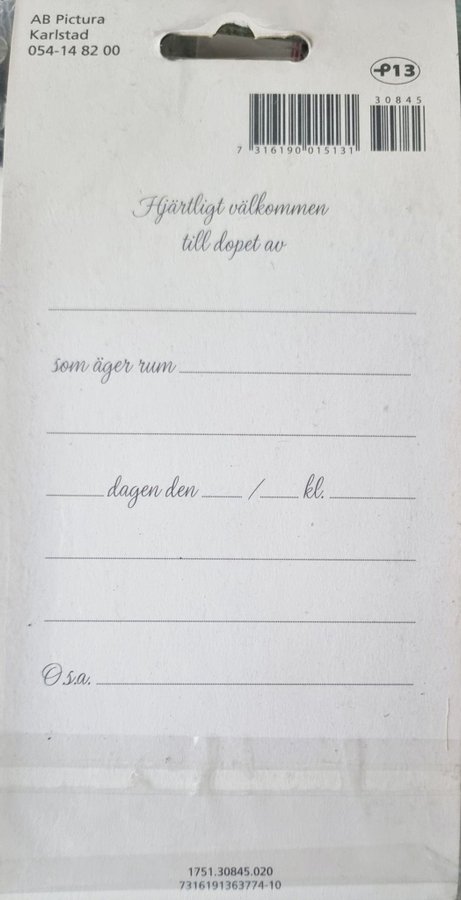 AB Pictura
Karlstad
054-14 82 00
P13
30845
7 316190 015131
Hjärtligt välkommen
till dopet av
som äger rum
dagen den / kl.
O.s.a.
1751.30845.020
7316191363774-10